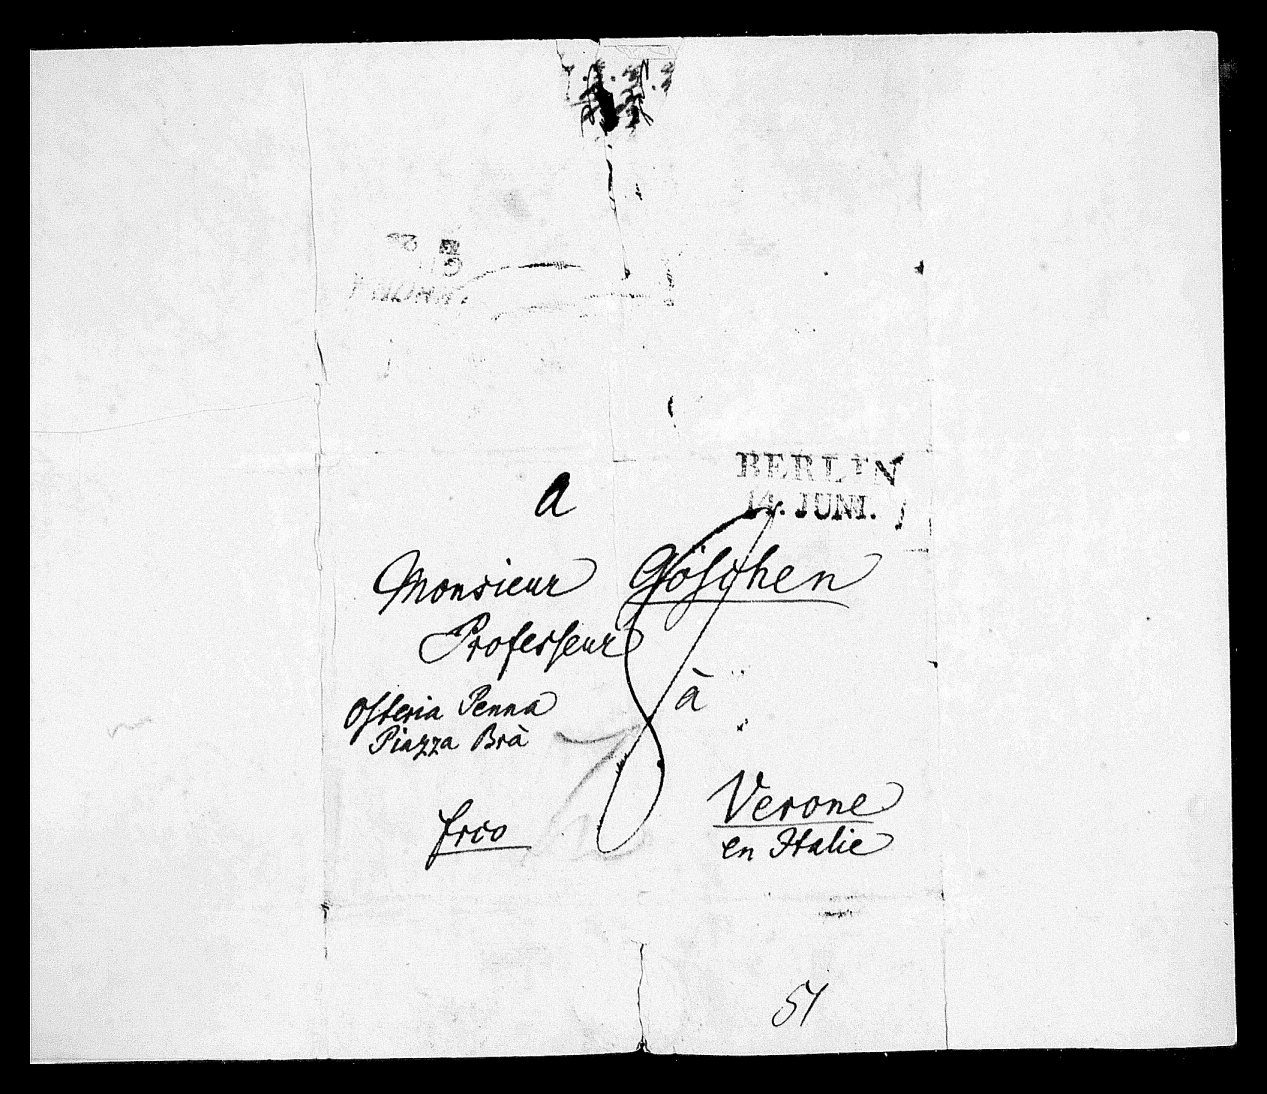 BERLIN
14. JUNI.
a
Monsieur Göschen
Professeur
à
Osteria Penna
Piazza Brà
Verone
en Italie
frco
51